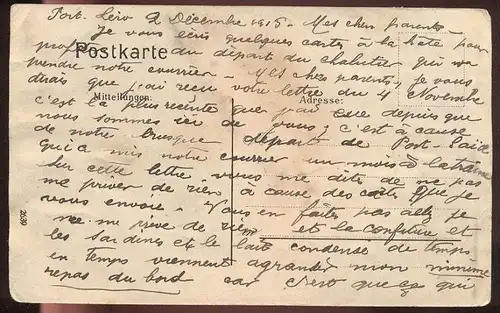 Port. Léro 2 Décembre 1915 - Mes chers parents -
Je vous écris quelques cartes à la hâte pour
profiter du départ du chalutier qui va
Postkarte
prendre notre courrier - Mes chers parents, je vous
dirais que j'ai reçu votre lettre du 4 Novembre
Mitteilungen: Adresse:
c'est la plus récente que j'ai eue depuis que
nous sommes ici de vous; c'est à cause
de notre brusque départ de Port-Saïd
qui a mis notre courrier un mois à la traîne
Sur cette lettre vous me dites de ne pas
me priver de rien à cause des cartes que je
vous envoie - Vous en faites pas allez je
ne me prive de rien et la confiture et
les sardines et le lait condensé de temps
en temps viennent agrandir mon minime
repas du bord car c'est que ça qui
2030